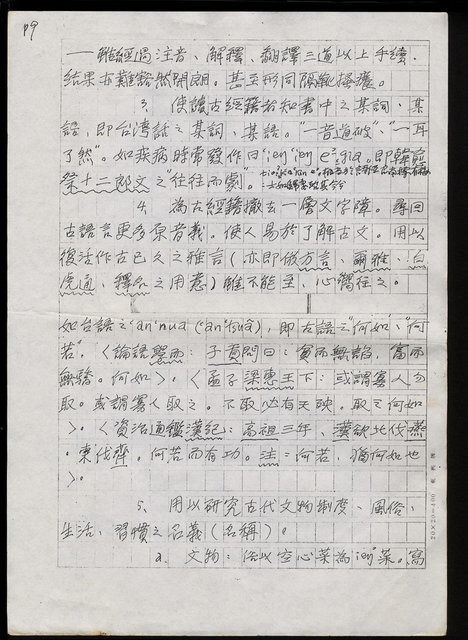 p9
一雖經過注音、解釋、翻譯三道以上手續,
結果亦難豁然開朗。甚至形同隔靴搔癢。
3. 使讀古經籍者知書中之某詞、某
語,即台灣話之某詞、某語。"一音道破"、"一耳
了然"。如疾病時常發作曰
祭十二郎文之"往往而劇"。
4. 為古經籍撤去一層文字障。尋回
古語言更多原音義。使人易於了解古文。用以
復活作古已久之雅言(亦即倣方言、爾雅、白
虎通、釋名之用意)雖不能至,心嚮往之。
如台語之 即古語之"何如"、"何
若"。〈論語學而:子貢問曰:貧而無諂,富而
無驕。何如〉。〈孟子梁惠王下:或謂寡人勿
取。或謂寡人取之。不取必有天殃。取之何如
〉。〈資治通鑑漢紀:高祖三年,漢欲北伐燕
。東伐齊。何若而有功。注:何若,猶何如也
〉。
5. 用以研究古代文物制度、風俗、
生活、習慣之名義(名稱)。
a. 文物:俗以空心菜為 菜。寫
20×20=400